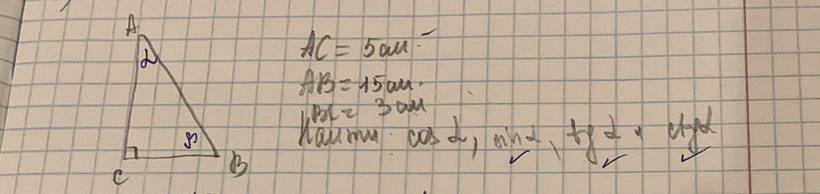 A
α
β
C
B
AC = 5 см
AB = 15 см.
BC = 3 см
Найти: cos α, sin α, tg α и ctg α